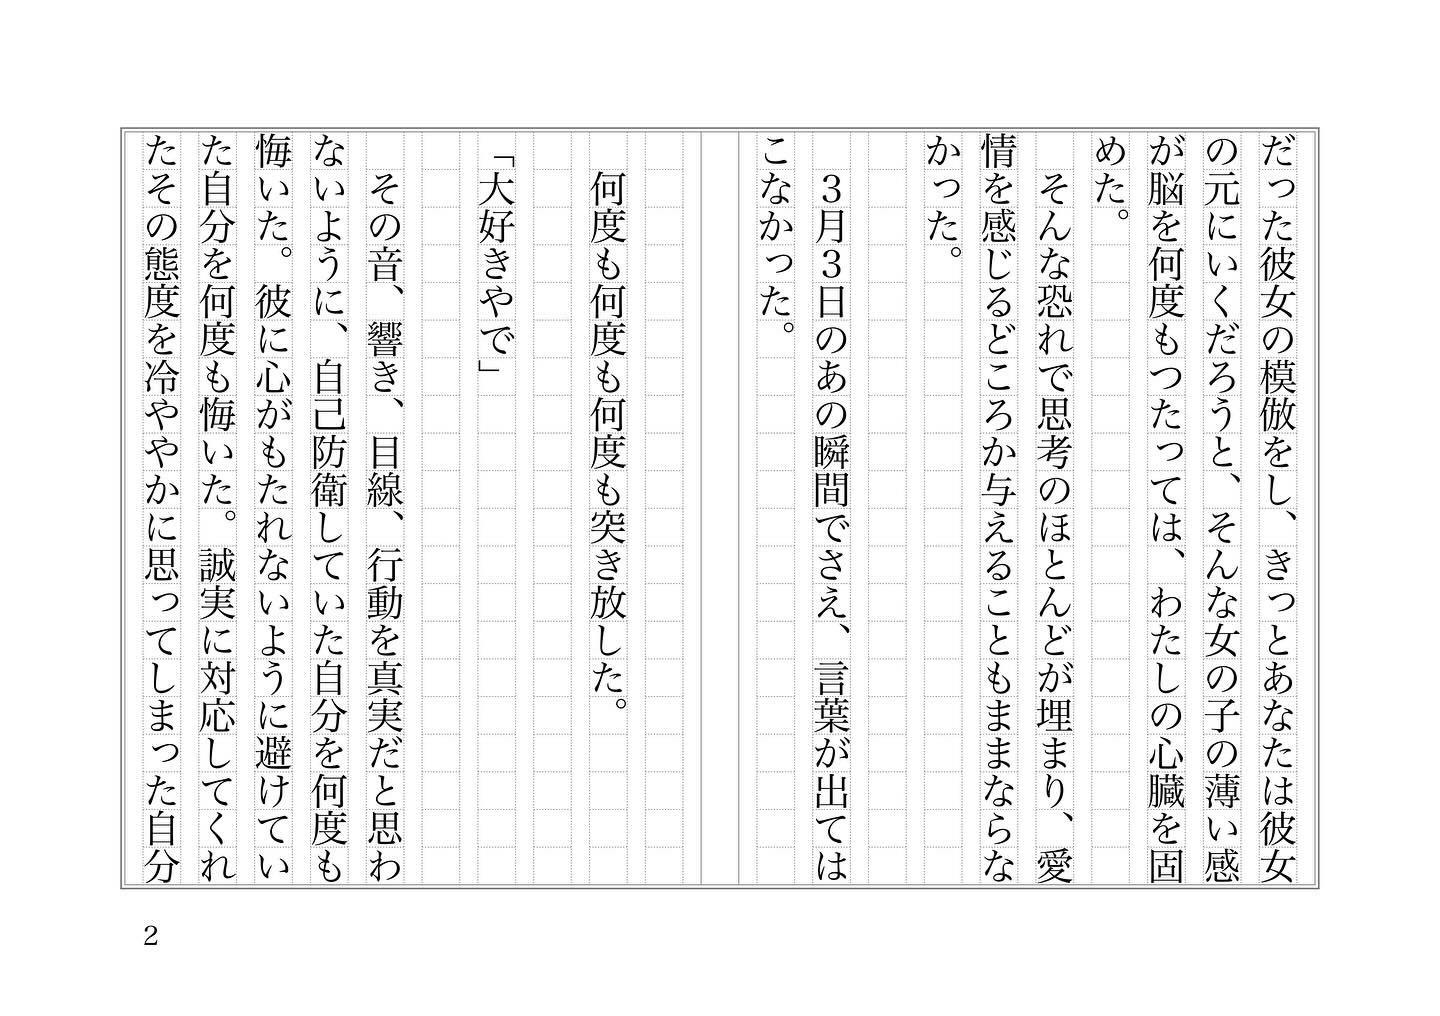 だった彼女の模倣をし、きっとあなたは彼女
の元にいくだろうと、そんな女の子の薄い感
が脳を何度もつたっては、わたしの心臓を固
めた。
　そんな恐れで思考のほとんどが埋まり、愛
情を感じるどころか与えることもままならな
かった。
　３月３日のあの瞬間でさえ、言葉が出ては
こなかった。
　何度も何度も何度も突き放した。
「大好きやで」
　その音、響き、目線、行動を真実だと思わ
ないように、自己防衛していた自分を何度も
悔いた。彼に心がもたれないように避けてい
た自分を何度も悔いた。誠実に対応してくれ
たその態度を冷ややかに思ってしまった自分
2